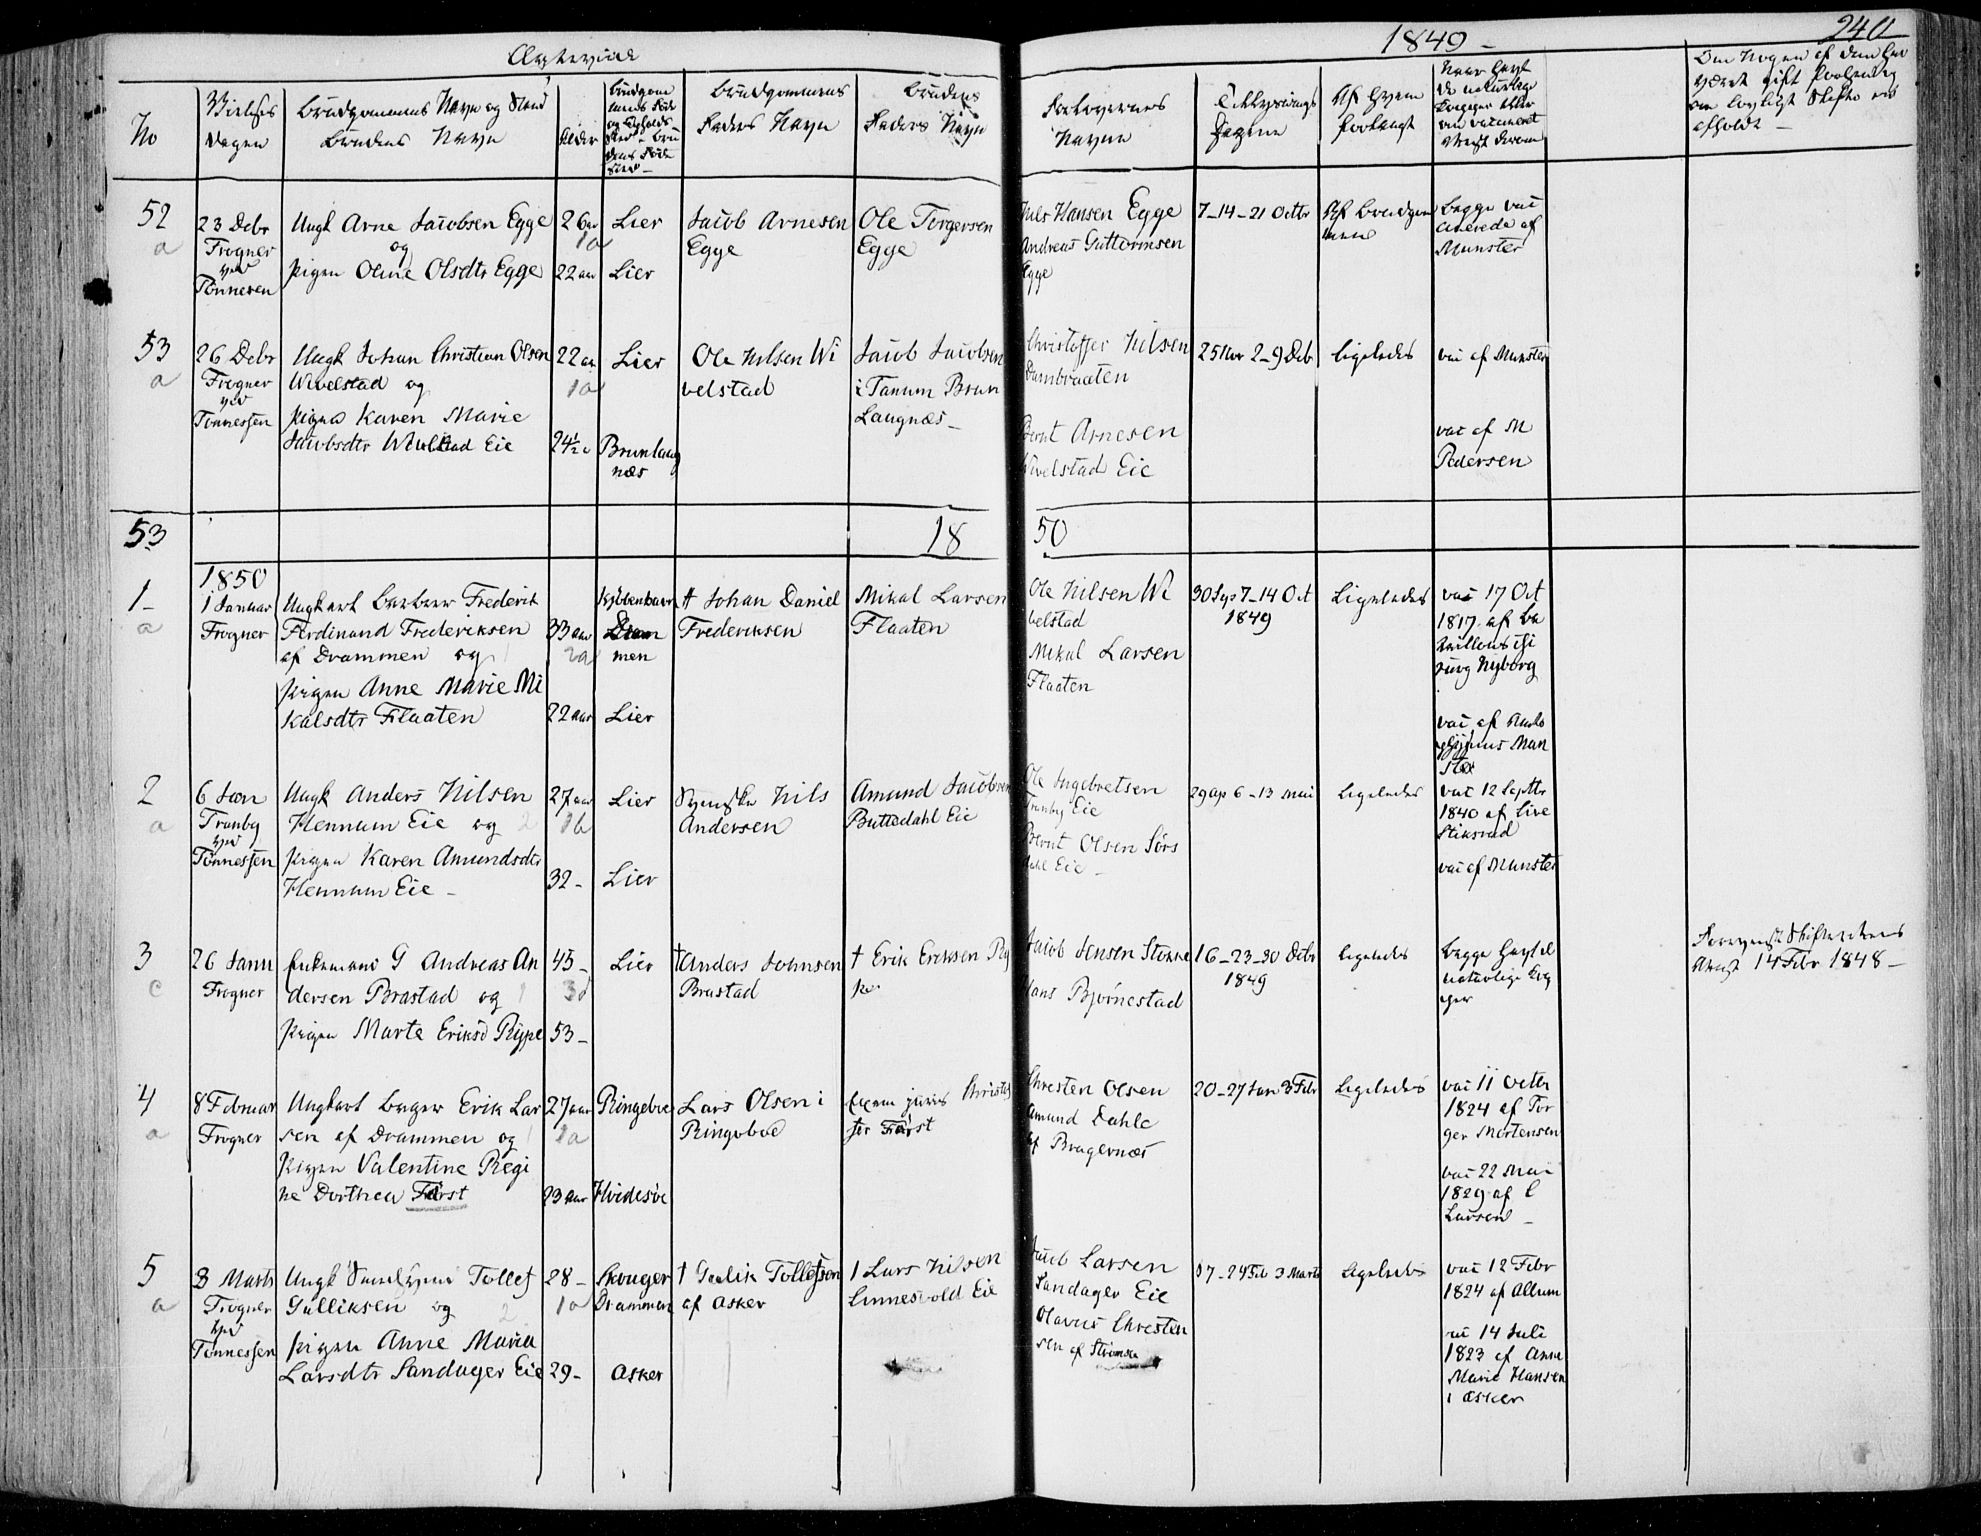 Ægteviede
1849 -
240
No
Vielses
Dagen
Brudgommens Navn og Stand
Brudens Navn
Alder
Brudgommens
Faders Navn
Brudens
Faders Navn
Forlovernes
Navne
Tillysnings
Dagene
Af hvem
forlangt
52
a
23 Debr
Frogner
ved
Tønnesen
Ungk Arne Jacobsen Egge
og
Pigen Oline Olsdtr Egge
26 aar
1a
22 aar
Lier
Lier
Jacob Arnesen
Egge
Ole Torgersen
Egge
Nils Hansen Egge
Andreas Guttormsen
Egge
7-14-21 Octbr
Af Brudgom
men
Begge vac
cinerede af
Munster
53
a
26 Debr
Frogner
ved
Tønnessen
Ungk Johan Christian Olsen
Wivelstad og
Pigen Karen Marie
Jacobsdtr Wivelstad Eie
22 aar
1a
24½
Lier
Brunlaug
næs
Ole Nilsen Wi
velstad
Jacob Jacobsen
i Tanum Brun
Laugnæs -
Christoffer Nilsen
Dambraaten
Bernt Arnesen
Wivelstad Eie
25 Nov 2-9 Deb
ligeledes
vac af Munster
vac af M
Pedersen
53
18
50
1850
1-
a
1 Januar
Frogner
Ungkarl Barber Frederik
Ferdinand Frederiksen
af Drammen og
Pigen Anne Marie Mi
kalsdtr Flaaten
33 aar
2a
22 aar
Kjøbenhavn
Dram
men
Lier
† Johan Daniel
Frederiksen
Mikal Larsen
Flaaten
Ole Nilsen Wi
velstad
Mikal Larsen
Flaaten
30 Sep 7-14 Oct
1849
Ligeledes
vac 17 Oct
1817 af Ba
taillons Chi
rurg Nyborg
vac af
Mun
ster
2
a
6 Jan
Tranby
ved
Tønnessen
Ungk Anders Nilsen
Hennum Eie og
Pigen Karen Amundsdtr
Hennum Eie -
27 aar
1b
32 -
Lier
Lier
Svenske Nils
Andersen
Amund Jacobsen
Buttedahl Eie
Ole Ingebretsen
Tranby Eie
Bernt Olsen Sørs
dahl Eie -
29 ap 6-13 Mai
Ligeledes
vac 12 Septbr
1840 af Live
Stiksrud
vac af Munster
3
c
26 Janu
Frogner
Enkemand G Andreas An
dersen Brastad og
Pigen Marte Eriksd Rype
45 -
3d
53 -
Lier
† Anders Johnsen
Brastad
† Erik Eriksen Ry
pe
Jacob Jensen Stokke
Hans Bjørnestad
16-23-30 Debr
1849
Ligeledes
Begge havt de
naturlige Kop
per
Foregaaende Skifterettens
Attest 14 Febr 1848 -
4
a
8 Februar
Frogner
Ungkarl Bager Erik Lar
sen af Drammen og
Pigen Valentine Regi
ne Dorthea Først
27 aar
1a
23 aar
Ringeboe
Hvidesøe
Lars Olsen i
Ringeboe
Exam juris Christof
fer Først
Chresten Olsen
Amund Dahle
af Bragernæs
20-27 Jan 3 Febr
Ligeledes
vac 11 Octbr
1824 af Tor
ger Mortensen
vac 22 Mai
1829 af C
Larsen -
5
a
3 Marts
Frogner
ved
Tønnessen
Ungk Tollef
Gulliksen og
Pigen Anne Maria
Larsdtr Sandager Eie
28 -
1a
29 -
Skouger
Drammen
Asker
† Gulik Tollefsen
af Asker
† Lars Nilsen
Linnesvold Eie
Jacob Larsen
Sandager Eie
Olaves Chresten
sen af Strømsø
17-24 Feb 3 Marts
Ligeledes
vac 12 Febr
1824 af Allum
vac 14 Juli
1823 af Anne
Marie Hansen
i Asker